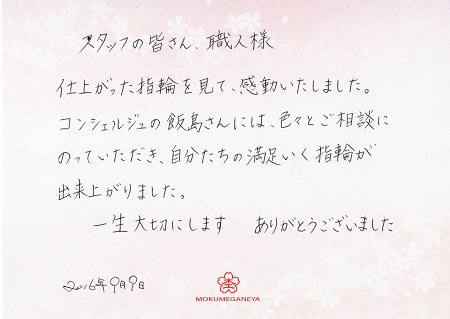 スタッフの皆さん、職人様
仕上がった指輪を見て、感動いたしました。
コンシェルジュの飯島さんには、色々とご相談に
のっていただき、自分たちの満足いく指輪が
出来上がりました。
一生大切にします　ありがとうございました
2016年9月9日
MOKUMEGANEYA